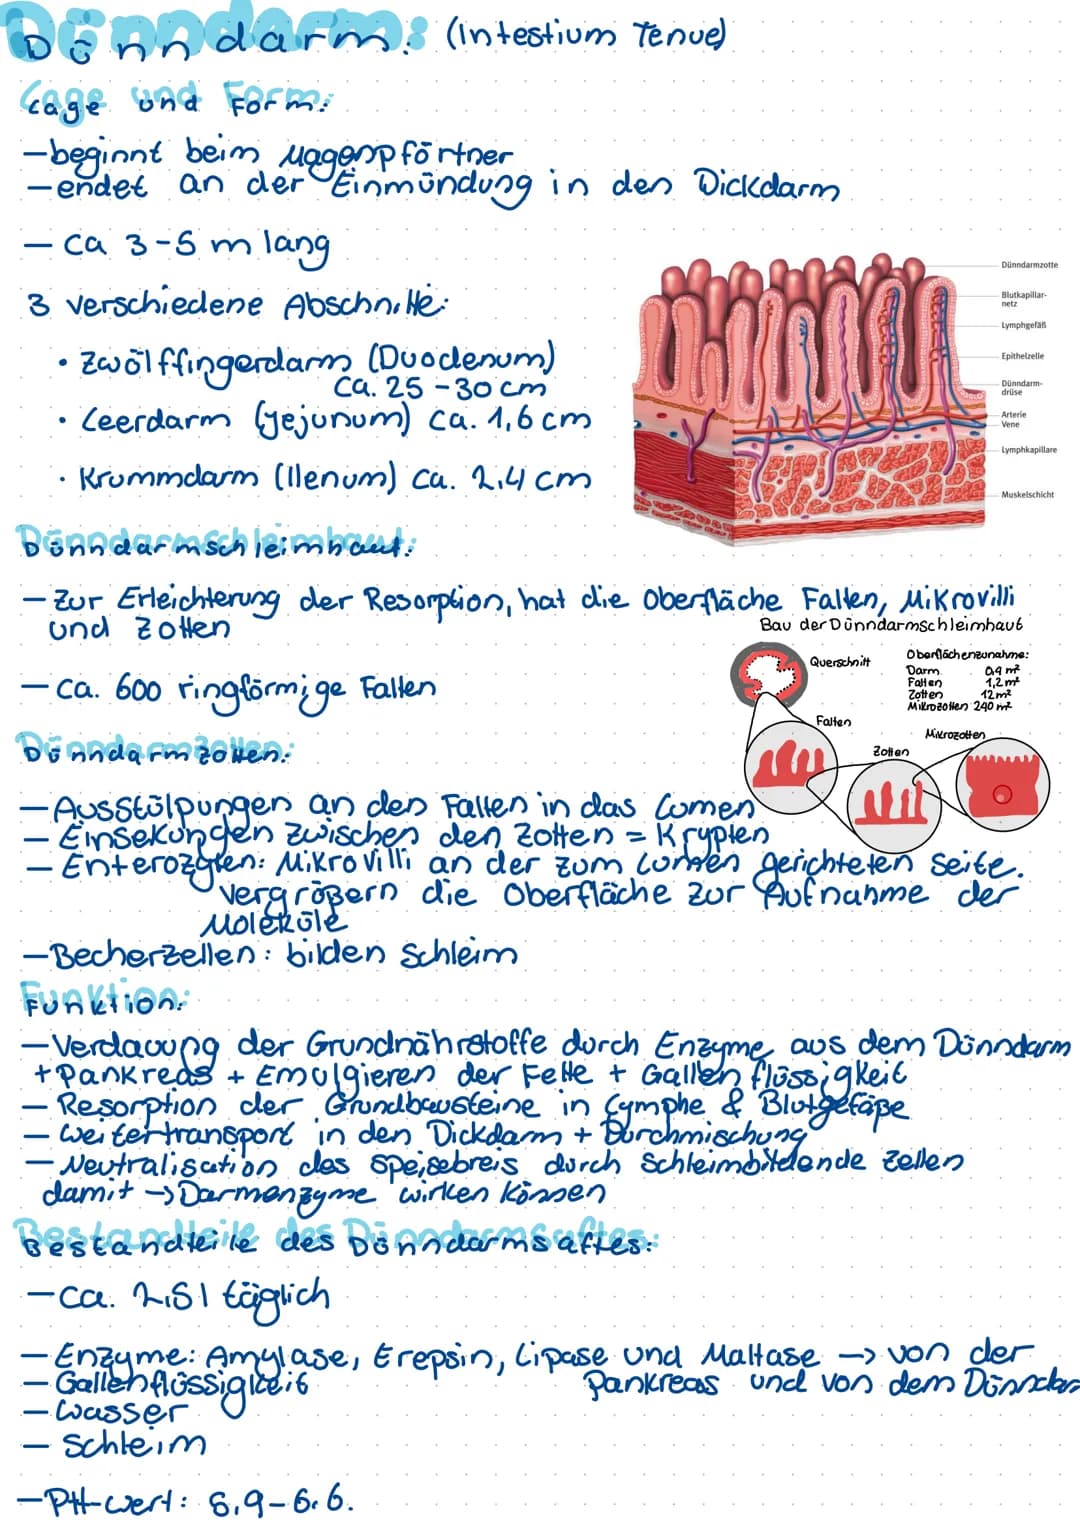 Dünndarm: (Intestium Tenue)
Lage und Form:
-beginnt beim Magenpförtner
-endet an der Einmündung in den Dickdarm
- ca 3-5 m lang
3 verschiedene Abschnitte:
• Zwölffingerdarm (Duodenum)
ca. 25-30 cm
• Leerdarm (Jejunum) ca. 1,6 cm
• Krummdarm (Ilenum) ca. 2,4 cm
Dünndarmzotte
Blutkapillar-
netz
Lymphgefäß
Epithelzelle
Dünndarm-
drüse
Arterie
Vene
Lymphkapillare
Muskelschicht
Dünndarmschleimhaut:
- Zur Erleichterung der Resorption, hat die Oberfläche Falten, Mikrovilli
und Zotten
- ca. 600 ringförmige Falten
Bau der Dünndarmschleimhaut
Querschnitt
Oberflächenzunahme:
Darm 0,4 m²
Falten 1,2 m²
Zotten 12 m²
Mikrozotten 240 m²
Falten
Zotten
Mikrozotten
Dünndarmzotten:
- Ausstülpungen an den Falten in das Lumen
- Einsekungen zwischen den Zotten = Krypten
- Enterozyten: Mikrovilli an der zum Lumen gerichteten Seite.
vergrößern die Oberfläche zur Aufnahme der
Moleküle
- Becherzellen: bilden Schleim
Funktion:
- Verdauung der Grundnährstoffe durch Enzyme aus dem Dünndarm
+ Pankreas + Emulgieren der Fette + Gallenflüssigkeit
- Resorption der Grundbausteine in Lymphe & Blutgefäße
- Weitertransport in den Dickdarm + Durchmischung
- Neutralisation des Speisebreis durch Schleimbildende Zellen
damit → Darmenzyme wirken können
Bestandteile des Dünndarmsaftes:
- ca. 2,5 l täglich
- Enzyme: Amylase, Erepsin, Lipase und Maltase → von der
Pankreas und von dem Dünndar
- Gallenflüssigkeit
- Wasser
- Schleim
- PH-Wert: 5,9-6,6.